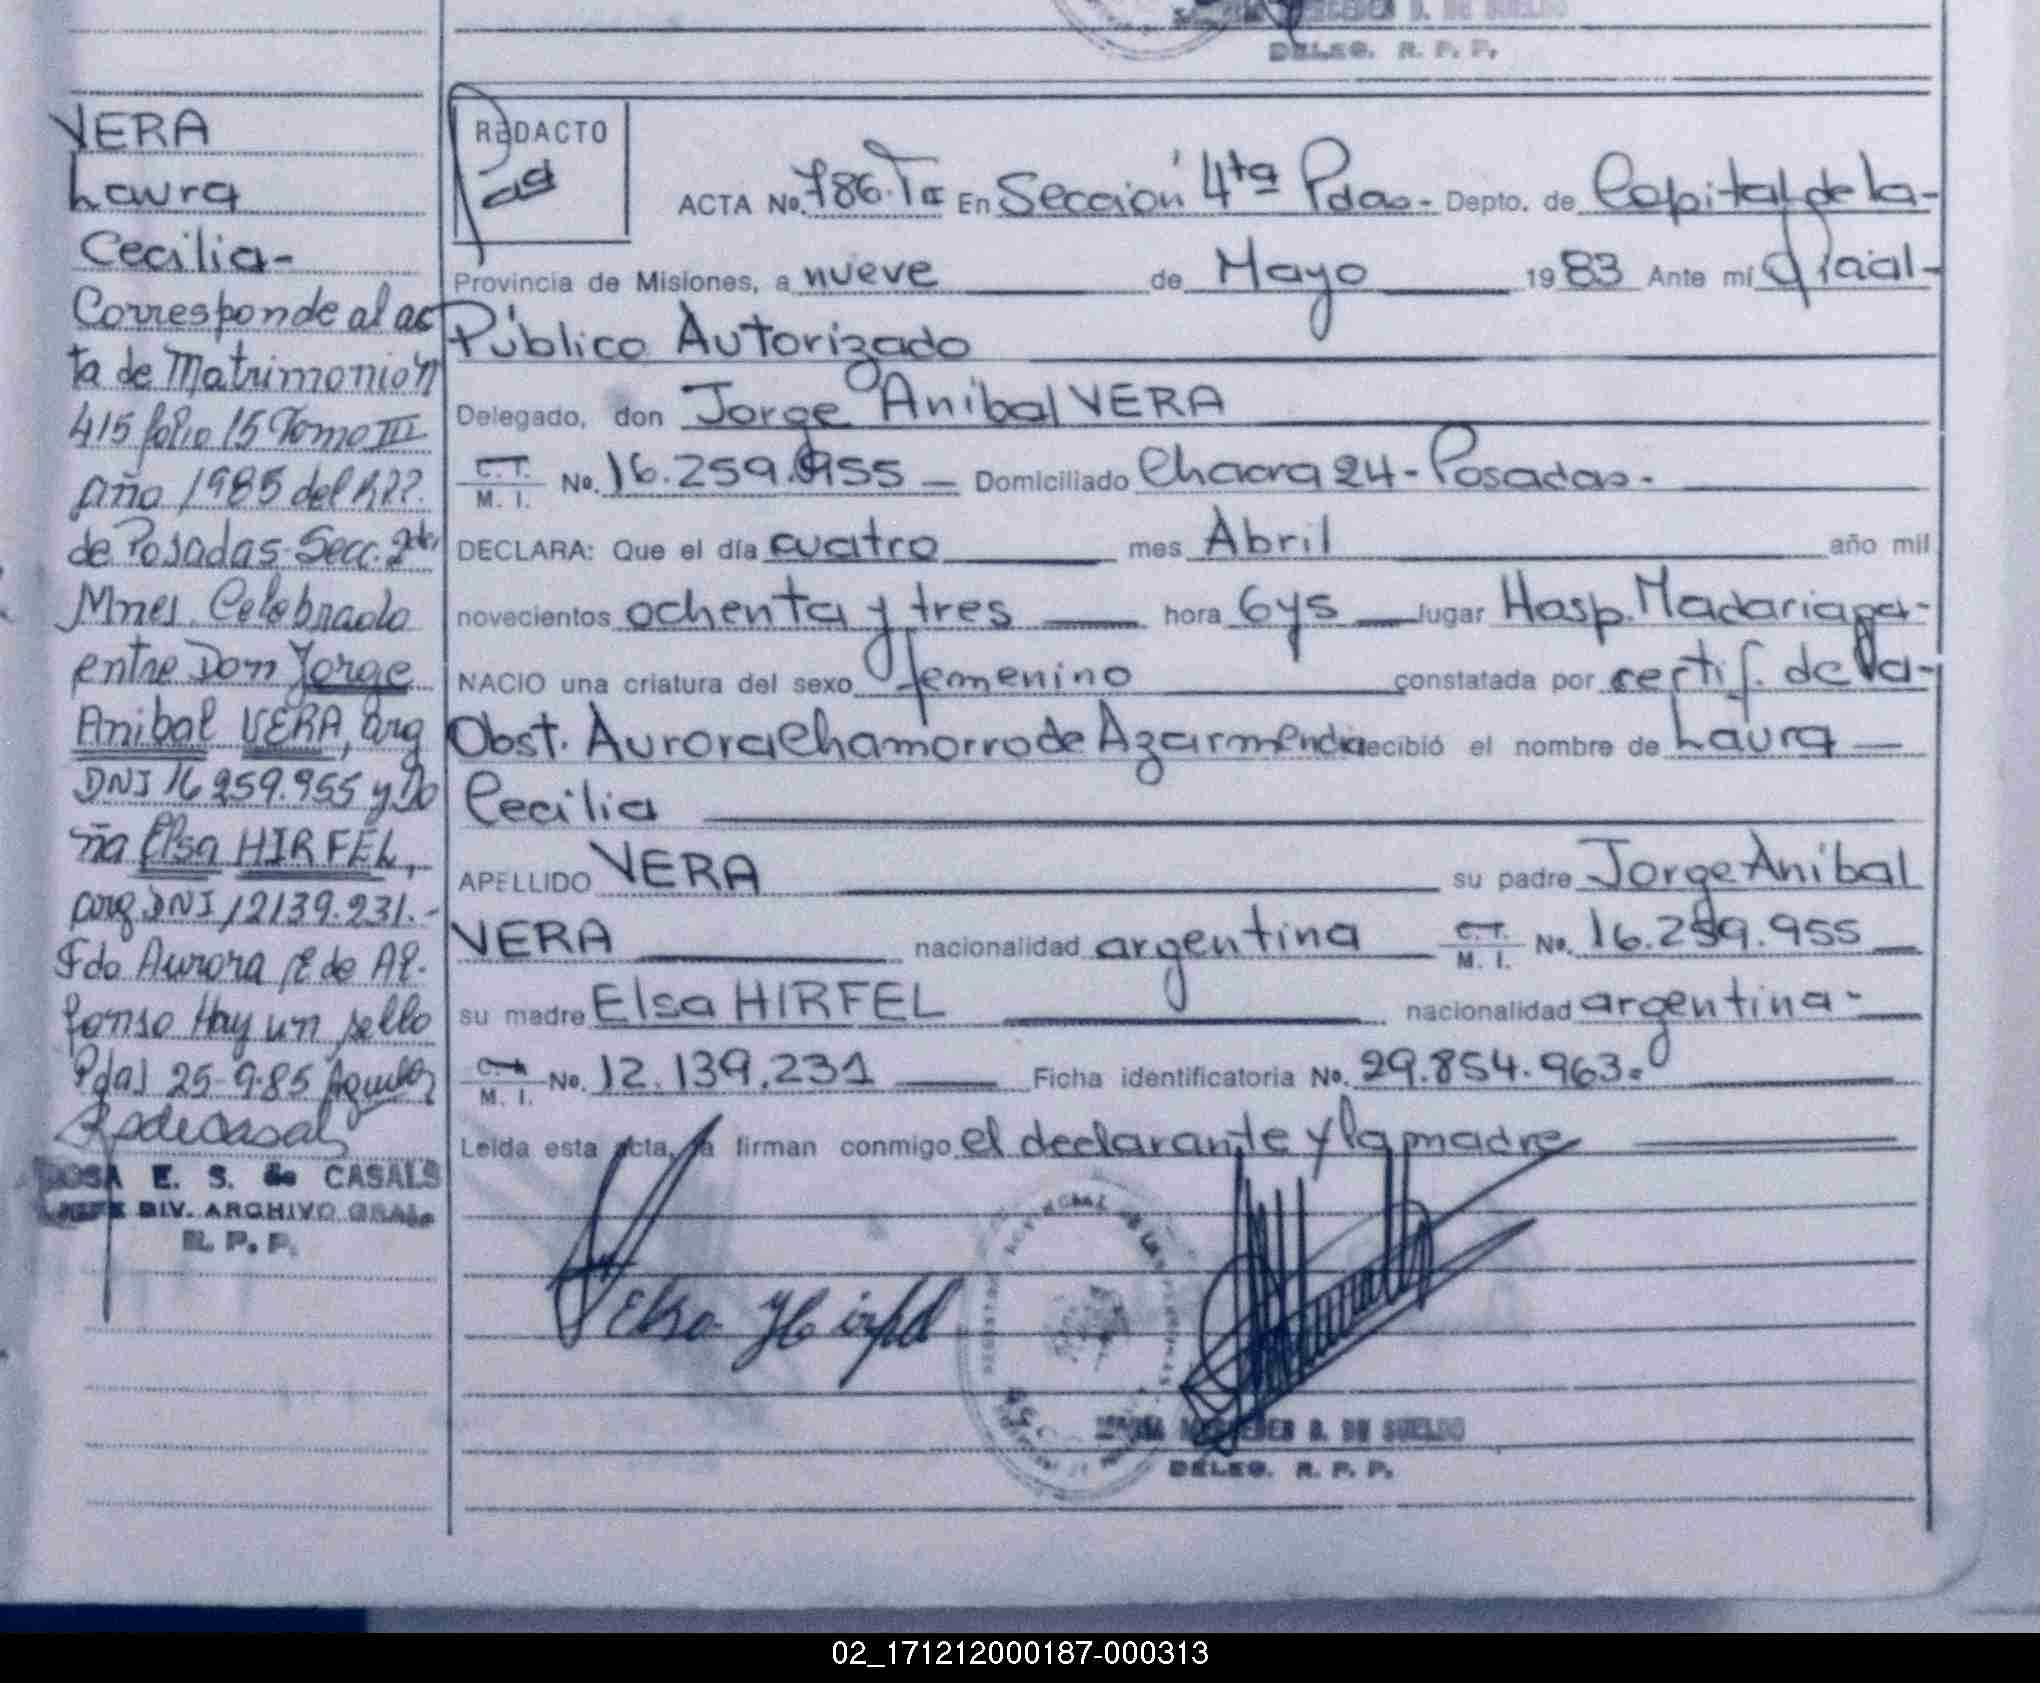 DELEG. R. P. P.
VERA
Laura
Cecilia-
Corresponde al ac
ta de Matrimonio nº
415 folio 15 Tomo III
año 1985 del R.P.P.
de Posadas-Secc. 2da,
Mnes. Celebrado
entre Don Jorge
Anibal VERA, arg
DNI 16 259.955 y Do
ña Elsa HIRFEL,
arg DNI 12139.231.-
Fdo Aurora E de Al-
fonso Hay un sello
Pdas 25-9-85
ROSA E. S. de CASALS
JEFE DIV. ARCHIVO GRAL.
R. P. P.
REDACTO
ACTA No. 786.Ta En Sección 4ta Pdas- Depto. de Capital de la-
Provincia de Misiones, a nueve de Mayo 1983 Ante mí Oficial-
Público Autorizado
Delegado, don Jorge Anibal VERA
C.T. M. I. No. 16.259.955 — Domiciliado Chacra 24 - Posadas-
DECLARA: Que el día cuatro mes Abril año mil
novecientos ochenta y tres hora 6 y 5 lugar Hosp. Madariaga-
NACIO una criatura del sexo femenino constatada por certif. de la-
Obst. Aurora Chamorro de Azarmendia recibió el nombre de Laura
Cecilia
APELLIDO VERA su padre Jorge Anibal
VERA nacionalidad argentina C.T. M. I. No. 16.259.955
su madre Elsa HIRFEL nacionalidad argentina-
M. I. No. 12.139.231 Ficha identificatoria No. 29.854.963.=
Leída esta acta, la firman conmigo el declarante y la madre
Elsa Hirfel
MARIA MERCEDES B. DE SUELDO
DELEG. R. P. P.
02_171212000187-000313